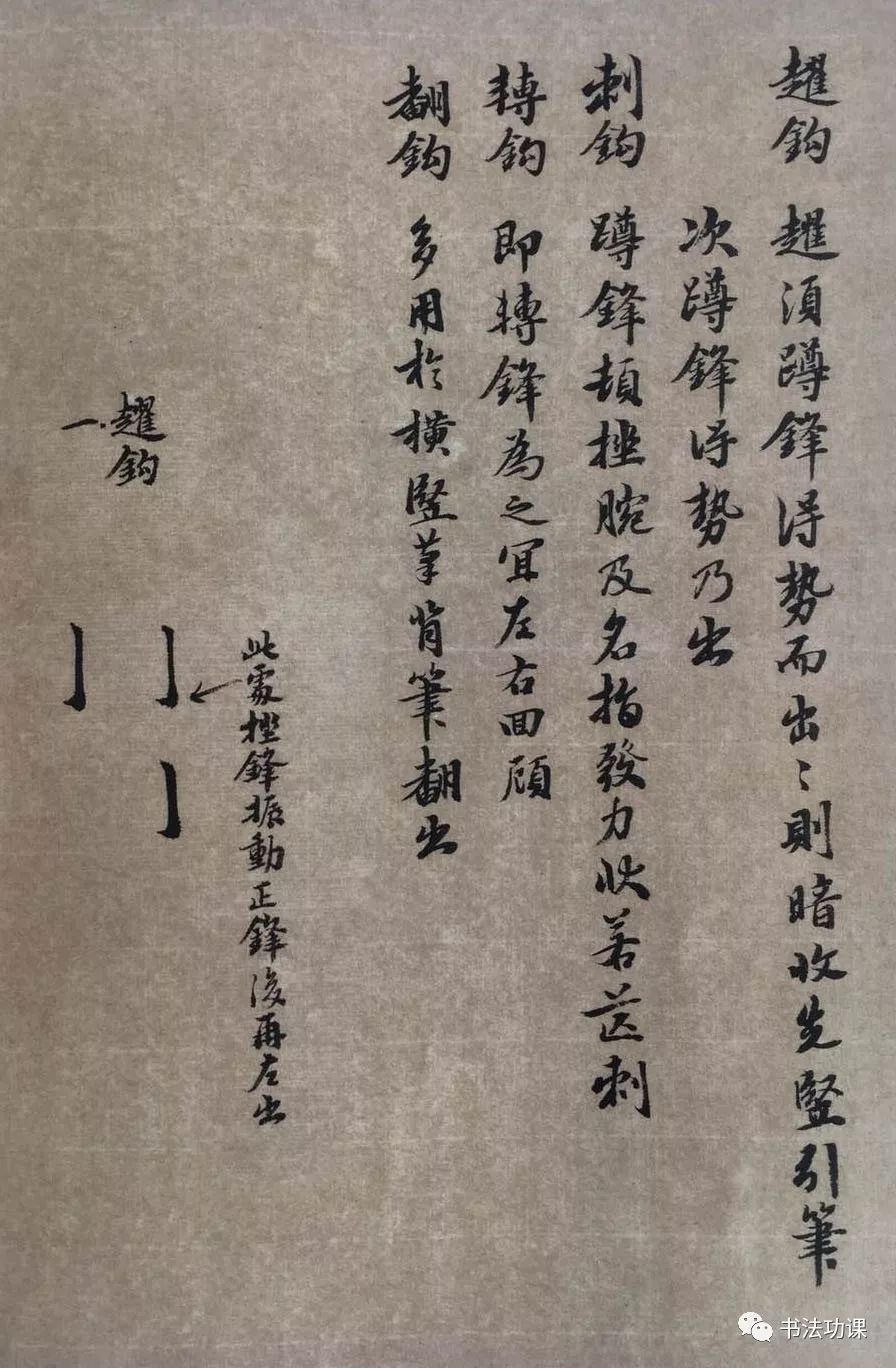 趯鈎 趯須蹲鋒得勢而出〻則暗收先竪引筆
次蹲鋒得勢乃出
刺鈎 蹲鋒頓挫腕及名指發力狀若芒刺
轉鈎 即轉鋒為之宜左右回顧
翻鈎 多用於橫竪背筆翻出
此處挫鋒振動正鋒後再左出
一.趯鈎
书法功课